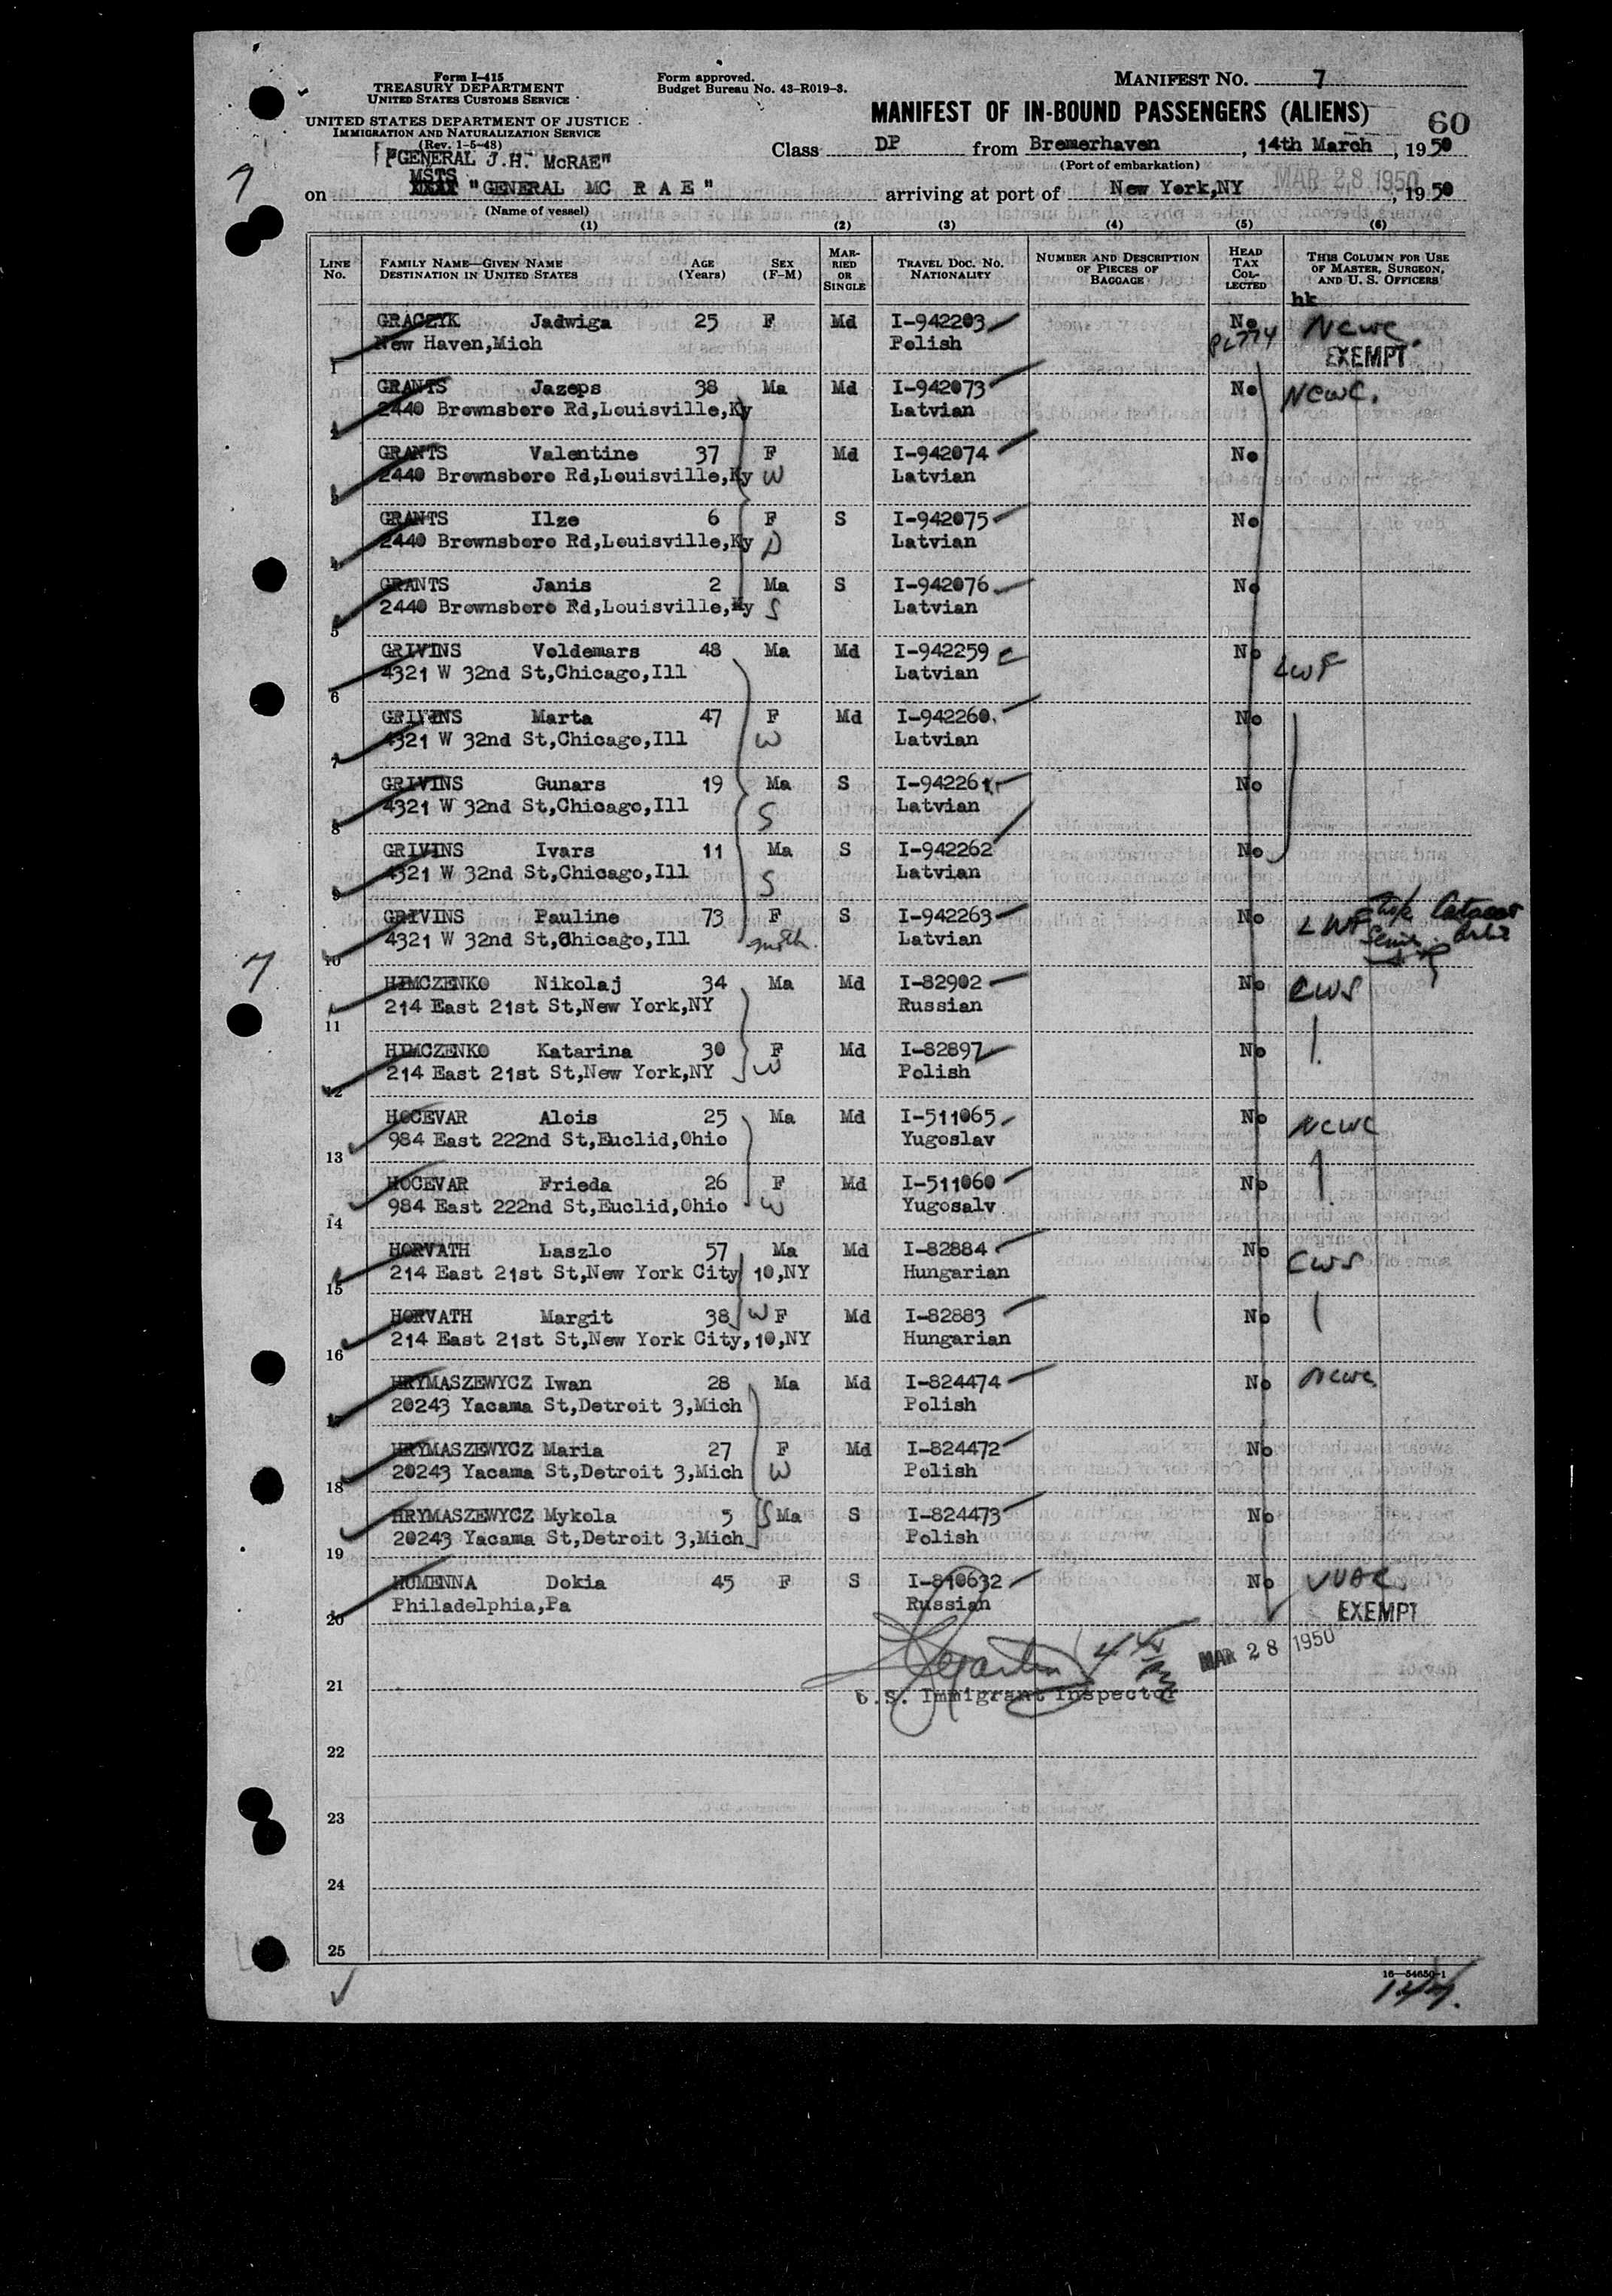 Form I-415
TREASURY DEPARTMENT
UNITED STATES CUSTOMS SERVICE
UNITED STATES DEPARTMENT OF JUSTICE
IMMIGRATION AND NATURALIZATION SERVICE
(Rev. 1-5-48)
Form approved.
Budget Bureau No. 43-R019-3.
MANIFEST NO. 7
MANIFEST OF IN-BOUND PASSENGERS (ALIENS)
60
Class DP from Bremerhaven, 14th March, 1950
(Port of embarkation)
"GENERAL J.H. McRAE"
MSTS
7
on XXXX "GENERAL MC R A E" arriving at port of New York,NY MAR 28 1950, 1950
(Name of vessel)
(1) (2) (3) (4) (5) (6)
LINE No. FAMILY NAME—GIVEN NAME DESTINATION IN UNITED STATES AGE (Years) SEX (F-M) MARRIED OR SINGLE TRAVEL DOC. NO. NATIONALITY NUMBER AND DESCRIPTION OF PIECES OF BAGGAGE HEAD TAX COLLECTED THIS COLUMN FOR USE OF MASTER, SURGEON, AND U. S. OFFICERS
hk
GRACZYK Jadwiga 25 F Md I-942203 No NCWC.
1 New Haven,Mich Polish PL774 EXEMPT
GRANTS Jazeps 38 Ma Md I-942073 No NCWC.
2 2440 Brownsboro Rd,Louisville,Ky Latvian
GRANTS Valentine 37 F Md I-942074 No
3 2440 Brownsboro Rd,Louisville,Ky W Latvian
GRANTS Ilze 6 F S I-942075 No
4 2440 Brownsboro Rd,Louisville,Ky D Latvian
GRANTS Janis 2 Ma S I-942076 No
5 2440 Brownsboro Rd,Louisville,Ky S Latvian
GRIVINS Voldemars 48 Ma Md I-942259 No LWF
6 4321 W 32nd St,Chicago,Ill Latvian
GRIVINS Marta 47 F Md I-942260 No
7 4321 W 32nd St,Chicago,Ill W Latvian
GRIVINS Gunars 19 Ma S I-942261 No
8 4321 W 32nd St,Chicago,Ill S Latvian
GRIVINS Ivars 11 Ma S I-942262 No
9 4321 W 32nd St,Chicago,Ill S Latvian
GRIVINS Pauline 73 F S I-942263 No LWF
10 4321 W 32nd St,Chicago,Ill moth. Latvian
7
HIMCZENKO Nikolaj 34 Ma Md I-82902 No CWS
11 214 East 21st St,New York,NY Russian
HIMCZENKO Katarina 30 F Md I-82897 No
12 214 East 21st St,New York,NY W Polish
HOCEVAR Alois 25 Ma Md I-511065 No NCWC
13 984 East 222nd St,Euclid,Ohio Yugoslav
HOCEVAR Frieda 26 F Md I-511060 No
14 984 East 222nd St,Euclid,Ohio W Yugosalv
HORVATH Laszlo 57 Ma Md I-82884 No CWS
15 214 East 21st St,New York City 10,NY Hungarian
HORVATH Margit 38 W F Md I-82883 No
16 214 East 21st St,New York City,10,NY Hungarian
HRYMASZEWYCZ Iwan 28 Ma Md I-824474 No NCWC
17 20243 Yacama St,Detroit 3,Mich Polish
HRYMASZEWYCZ Maria 27 F Md I-824472 No
18 20243 Yacama St,Detroit 3,Mich W Polish
HRYMASZEWYCZ Mykola 5 S Ma S I-824473 No
19 20243 Yacama St,Detroit 3,Mich Polish
HUMENNA Dokia 45 F S I-810632 No
20 Philadelphia,Pa Russian EXEMPT
MAR 28 1950
21 U.S. Immigrant Inspector
22
23
24
25
16—54650-1